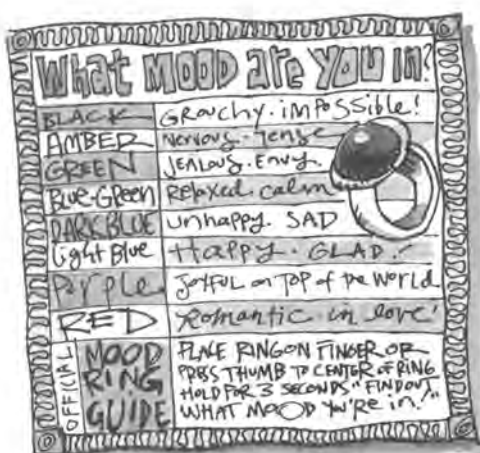 What MOOD are You in?
BLACK Grouchy. imPossible!
AMBER Nervous. Tense
GREEN JEALOUS. Envy.
Blue-Green Relaxed. calm
DARK BLUE unhappy. SAD
Light Blue Happy. GLAD!
Purple. Joyful on TOP of the World
RED Romantic. in love!
OFFICIAL MOOD RING GUIDE
PLACE RING ON FINGER OR
PRESS THUMB TO CENTER OF RING
HOLD FOR 3 SECONDS "FIND OUT
WHAT MOOD YOU'RE in!"